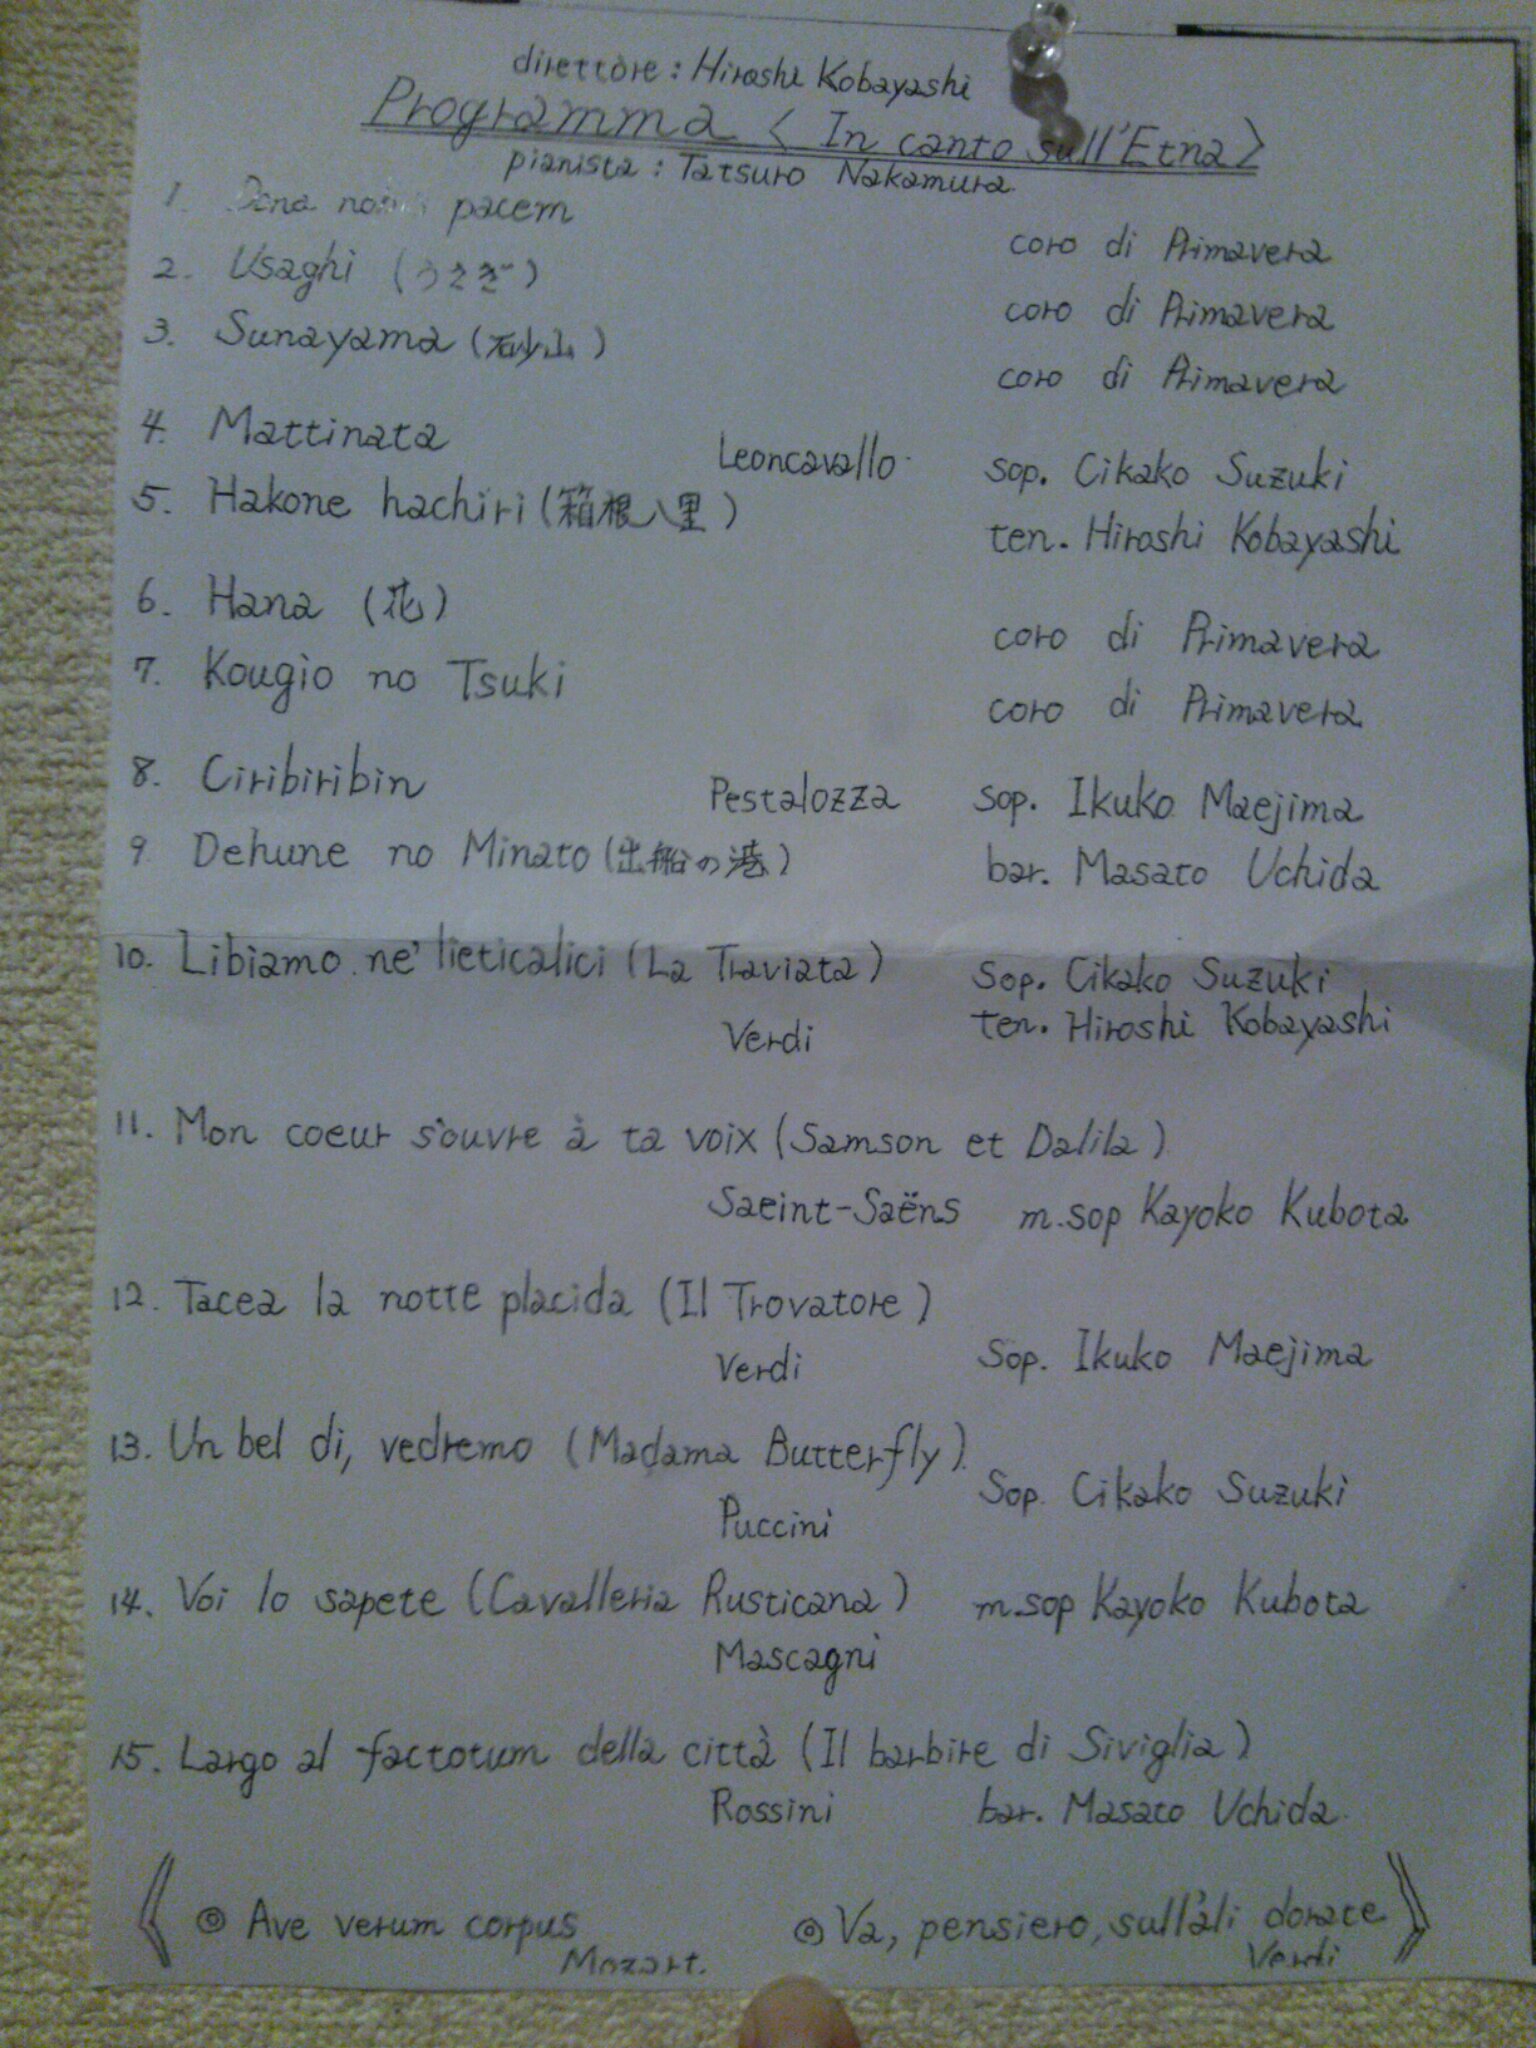 direttore : Hiroshi Kobayashi
Programma < In canto sull'Etna >
pianista : Tatsuro Nakamura.
1. Dona nobis pacem
coro di Primavera
2. Usaghi (うさぎ)
coro di Primavera
3. Sunayama (砂山)
coro di Primavera
4. Mattinata Leoncavallo sop. Cikako Suzuki
5. Hakone hachiri (箱根八里) ten. Hiroshi Kobayashi
6. Hana (花) coro di Primavera
7. Kougio no Tsuki coro di Primavera
8. Ciribiribin Pestalozza sop. Ikuko Maejima
9 Dehune no Minato (出船の港) bar. Masato Uchida
10. Libiamo ne' lieticalici (La Traviata) Sop. Cikako Suzuki
Verdi ten. Hiroshi Kobayashi
11. Mon coeur s'ouvre à ta voix (Samson et Dalila)
Saeint-Saëns m.sop Kayoko Kubota
12. Tacea la notte placida (Il Trovatore)
Verdi Sop. Ikuko Maejima
13. Un bel di, vedremo (Madama Butterfly).
Puccini Sop. Cikako Suzuki
14. Voi lo sapete (Cavalleria Rusticana) m.sop Kayoko Kubota
Mascagni
15. Largo al factotum della città (Il barbire di Siviglia)
Rossini bar. Masato Uchida.
《 ◎ Ave verum corpus ◎ Va, pensiero, sull'ali dorate 》
Mozart. Verdi